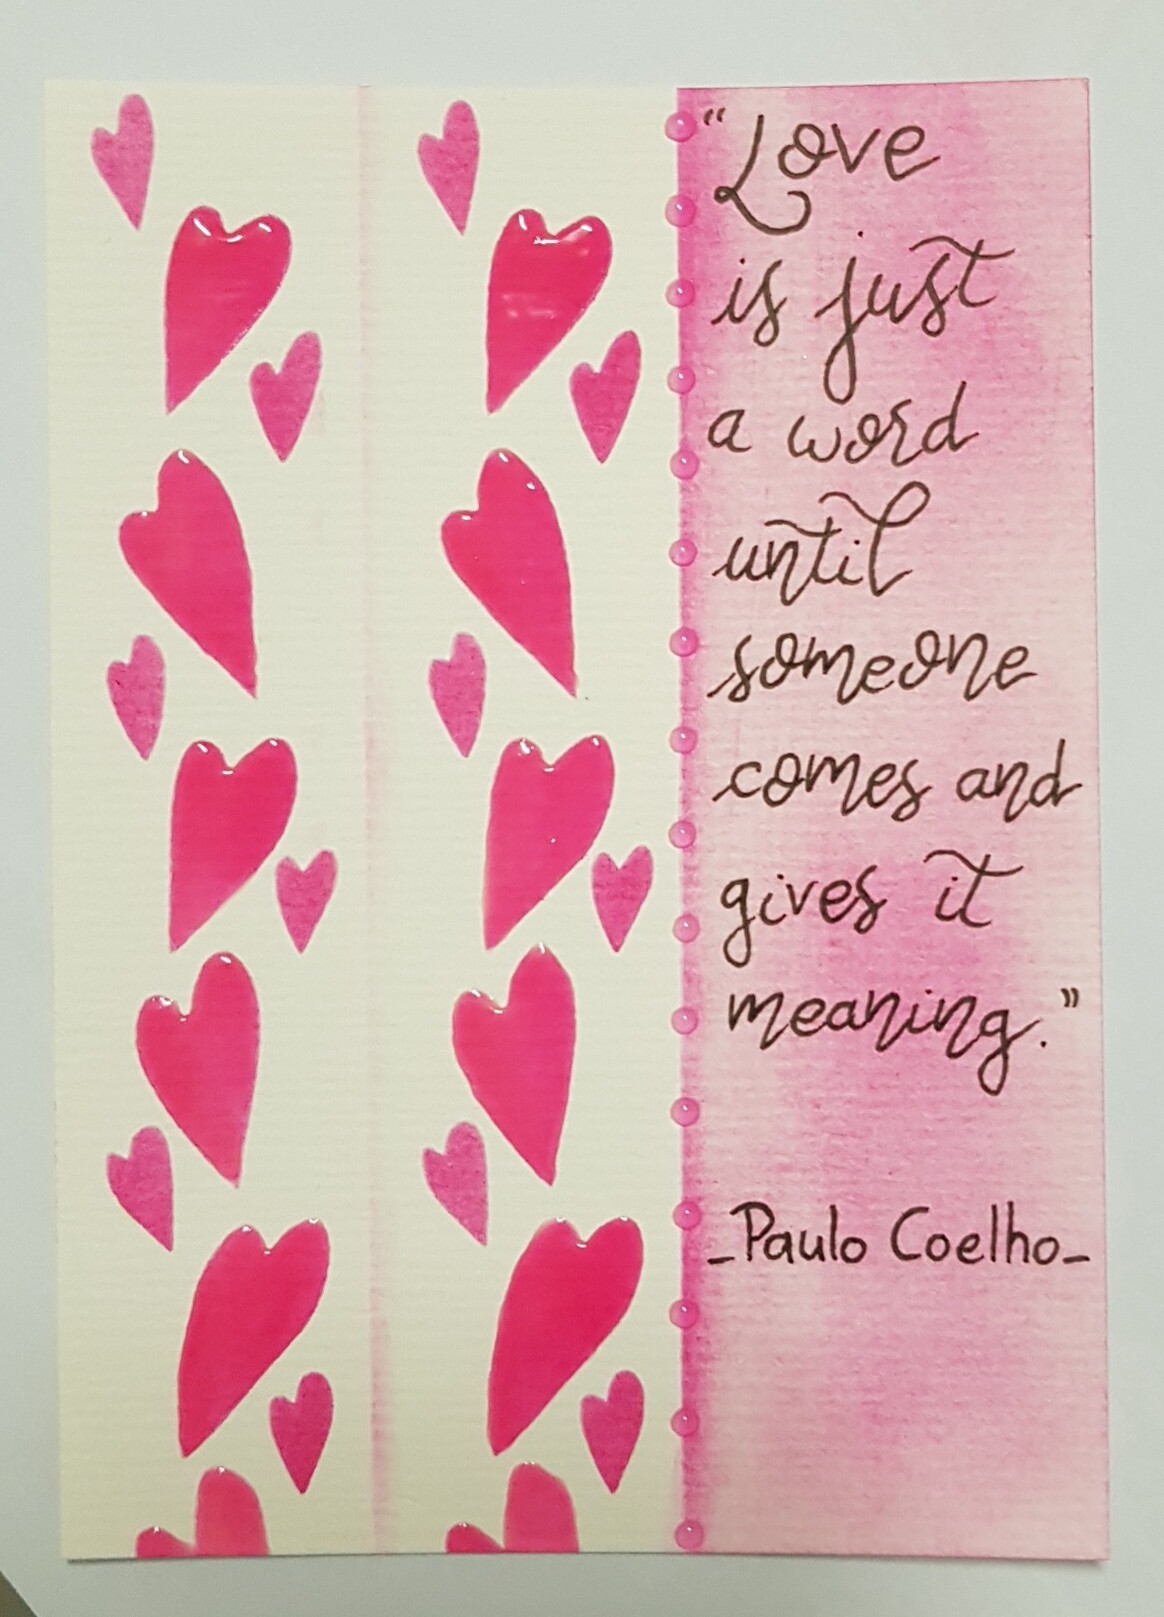 “Love
is just
a word
until
someone
comes and
gives it
meaning.”
-Paulo Coelho-